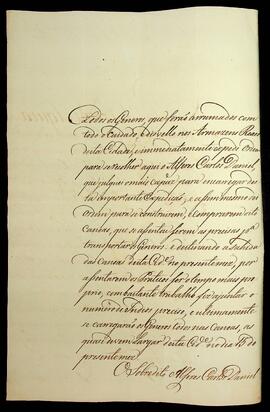 todos os Generos, que forão arrumados com
todo o Cuidado, e desvello nos Armazens Reaes
desta Cidade, e immediatamente expedi Ordem
para se recolher aqui o Alferes Carlos Daniel,
que julguei o mais capaz para encarregar des-
ta importante Expedição, e assim mesmo
ordem para se construirem, e comprarem
Canoas, que se assentou serem as precisas pª
transportar os Generos, e destinando a Sahida
das canoas desta Cidᵉ no presente mez, por
assentarem os Praticos ser o tempo mais pro-
prio, com bastante trabalho fiz apontar o
numero de Indios preciso, e ultimamente
se carregarão os Generos todos nas Canoas, as
quaes devem Largar desta Cidᵉ no dia 15 do
presente mez.
O Sobredito Alferes Carlos Daniel